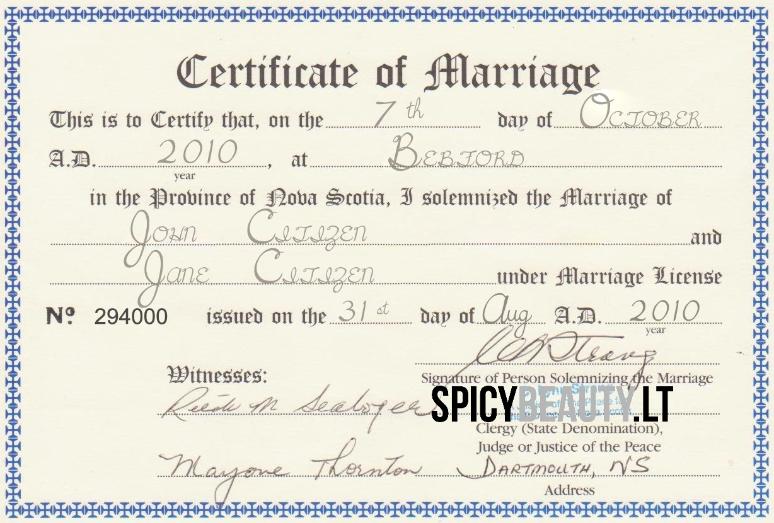 Certificate of Marriage
This is to Certify that, on the 7th day of October
A.D. 2010, at Bedford
year
in the Province of Nova Scotia, I solemnized the Marriage of
John Citizen and
Jane Citizen under Marriage License
Nº 294000 issued on the 31st day of Aug A.D. 2010
year
Witnesses:
Signature of Person Solemnizing the Marriage
SPICYBEAUTY.LT
Clergy (State Denomination),
Judge or Justice of the Peace
Thornton Dartmouth, NS
Address